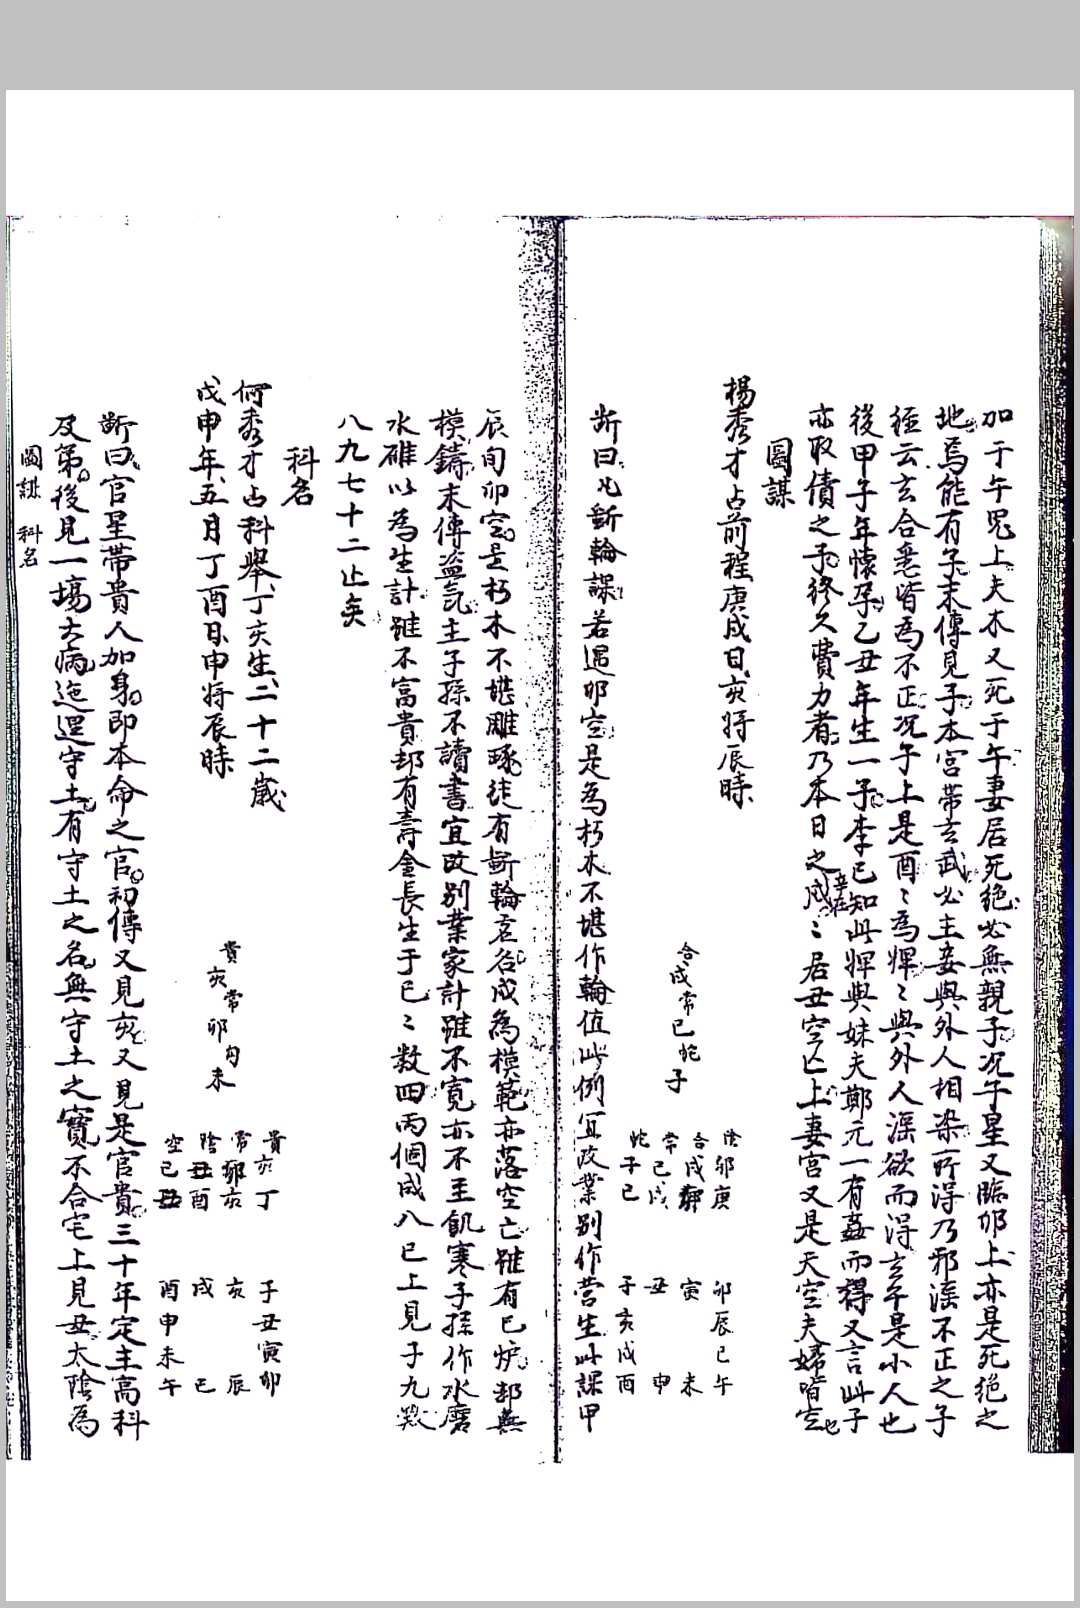 加于午鬼上夫木又死于午妻居死絕必無親子况午星又臨卯上亦是死絕之
地焉能有子末傳見子本宮帶玄武必主妾與外人相染所淂乃邪滛不正之子
經云玄合悉皆為不正况午上是酉〻為婢〻與外人滛欲而淂玄午是小人也
後甲子年懷孕乙丑年生一子李已知此婢與妹夫鄭元一有姦而得又言此子
亦取債之子終久費力者乃本日之戌〻居丑空亡上妻宮又是天空夫婦皆空也
圖謀
楊秀才占前程庚戌日亥將辰時
合戌 常巳 蛇子
陰卯庚 合戌卯 常巳戌 蛇子巳
卯辰巳午
寅 未
丑 申
子亥戌酉
断曰凡斷輪課若遇卯空是為朽木不堪作輪值此例宜改業別作营生此課甲
辰旬卯空是朽木不堪雕琢徒有斷輪之名戌為模範亦落空亡雖有巳炉却無
模鑄末傳盜氣主子孫不讀書宜改別業家計雖不寛亦不至飢寒子孫作水磨
水碓以為生計雖不富貴却有壽金長生于巳〻数四丙個成八巳上見子九数
八九七十二止矣
科名
何秀才占科舉丁亥生二十二歲
戊申年五月丁酉日申將辰時
貴亥 常卯 勾未
貴亥丁 常卯亥 陰丑酉 空巳丑
子丑寅卯
亥 辰
戌 巳
酉申未午
断曰官星帶貴人加身即本命之官初傳又見亥又見是官貴三十年定主高科
及第後見一塲大病迤𨓦守土有守土之名無守土之寶不合宅上見丑太陰為
圖謀 科名